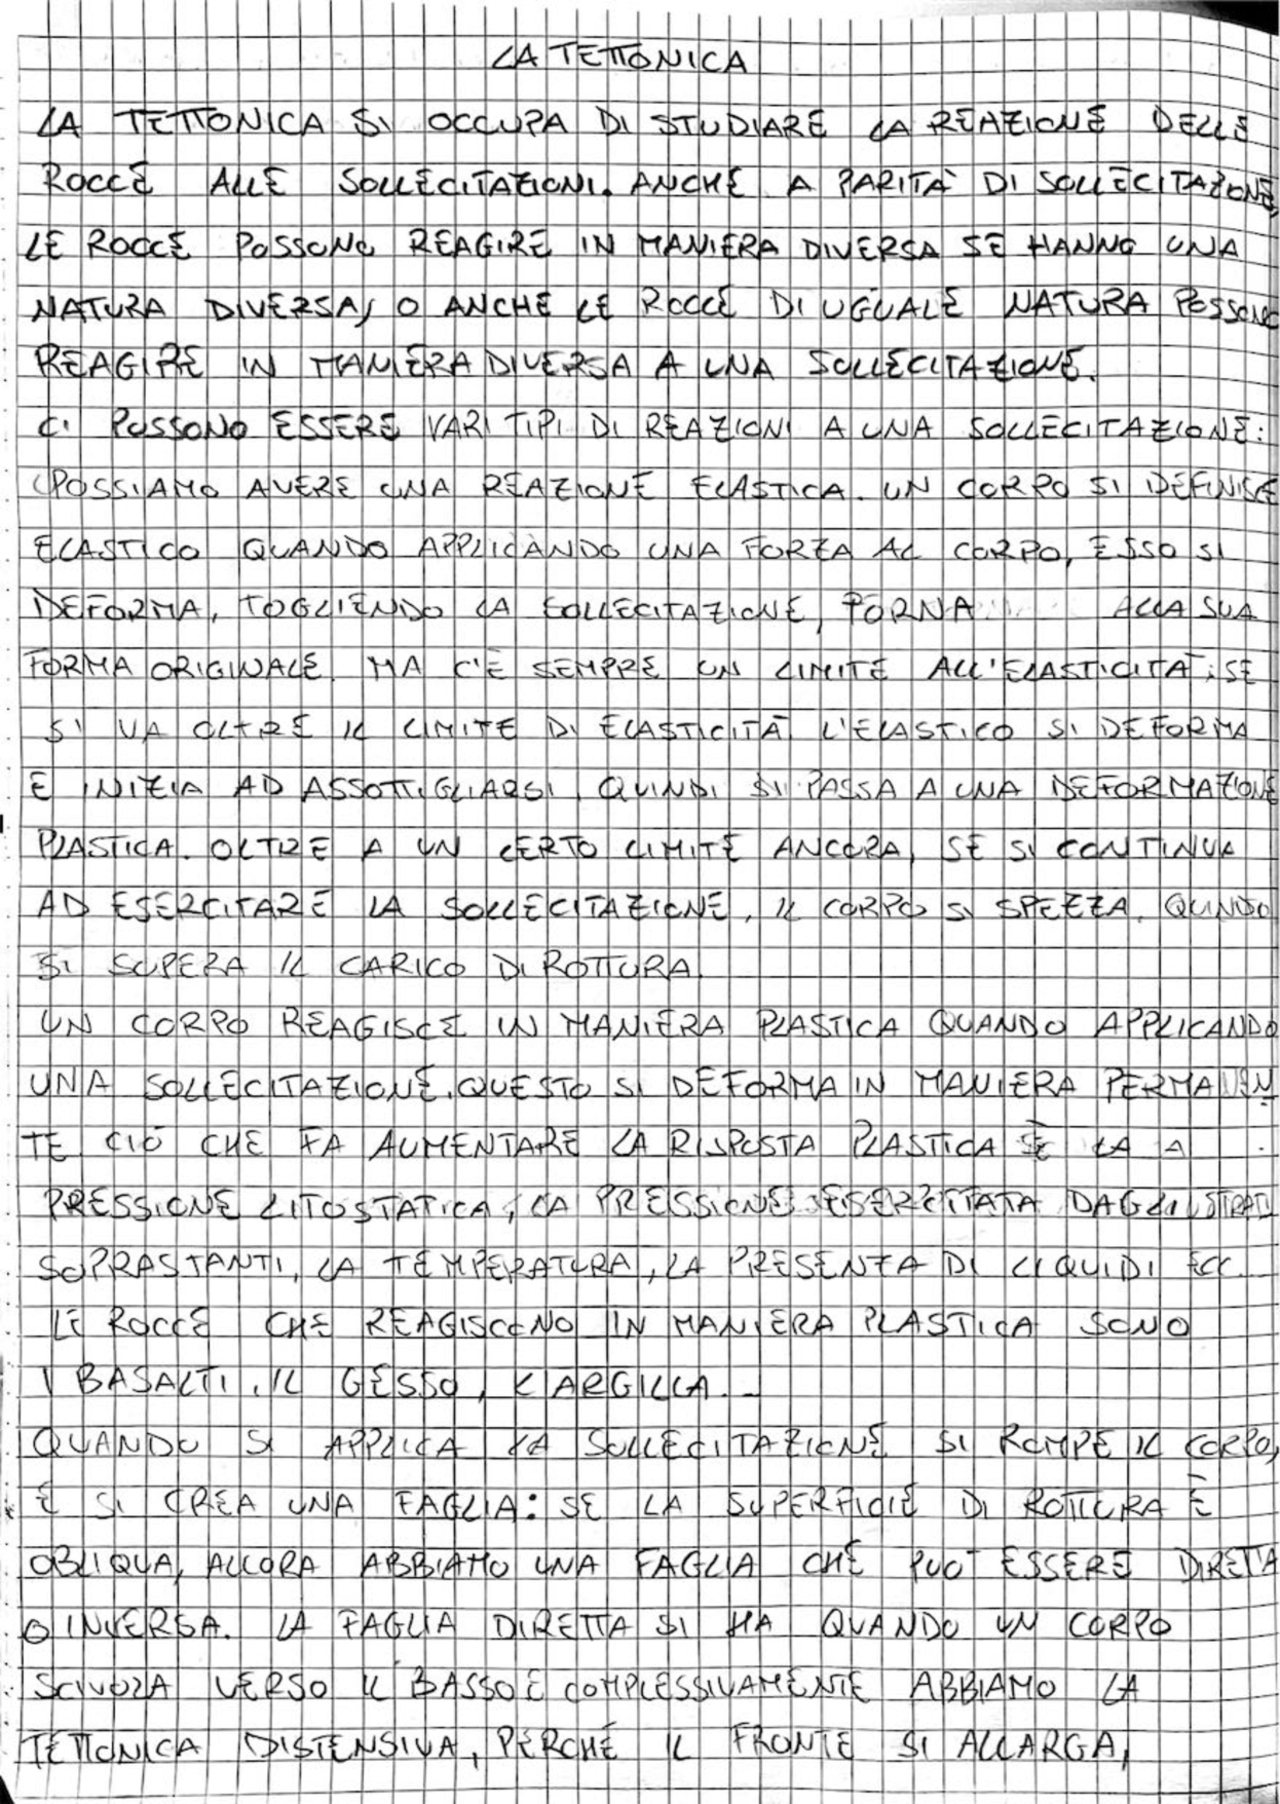 LA TETTONICA
LA TETTONICA SI OCCUPA DI STUDIARE LA REAZIONE DELLE
ROCCE ALLE SOLLECITAZIONI. ANCHE A PARITÀ DI SOLLECITAZIONE,
LE ROCCE POSSONO REAGIRE IN MANIERA DIVERSA SE HANNO UNA
NATURA DIVERSA, O ANCHE LE ROCCE DI UGUALE NATURA POSSONO
REAGIRE IN MANIERA DIVERSA A UNA SOLLECITAZIONE.
CI POSSONO ESSERE VARI TIPI DI REAZIONI A UNA SOLLECITAZIONE:
POSSIAMO AVERE UNA REAZIONE ELASTICA. UN CORPO SI DEFINISCE
ELASTICO QUANDO APPLICANDO UNA FORZA AL CORPO, ESSO SI
DEFORMA, TOGLIENDO LA SOLLECITAZIONE, TORNA ALLA SUA
FORMA ORIGINALE. MA C'È SEMPRE UN LIMITE ALL'ELASTICITÀ: SE
SI VA OLTRE IL LIMITE DI ELASTICITÀ L'ELASTICO SI DEFORMA
E INIZIA AD ASSOTTIGLIARSI, QUINDI SI PASSA A UNA DEFORMAZIONE
PLASTICA. OLTRE A UN CERTO LIMITE ANCORA, SE SI CONTINUA
AD ESERCITARE LA SOLLECITAZIONE, IL CORPO SI SPEZZA, QUNDO
SI SUPERA IL CARICO DI ROTTURA.
UN CORPO REAGISCE IN MANIERA PLASTICA QUANDO APPLICANDO
UNA SOLLECITAZIONE, QUESTO SI DEFORMA IN MANIERA PERMANEN
TE CIÒ CHE FA AUMENTARE LA RISPOSTA PLASTICA È LA
PRESSIONE LITOSTATICA, LA PRESSIONE ESERCITATA DAGLI STRATI
SOPRASTANTI, LA TEMPERATURA, LA PRESENZA DI LIQUIDI ECC.
LE ROCCE CHE REAGISCONO IN MANIERA PLASTICA SONO
I BASALTI, IL GESSO, L'ARGILLA..
QUANDO SI APPLICA LA SOLLECITAZIONE SI ROMPE IL CORPO,
E SI CREA UNA FAGLIA: SE LA SUPERFICIE DI ROTTURA È
OBLIQUA, ALLORA ABBIAMO UNA FAGLIA CHE PUÒ ESSERE DIRETTA
O INVERSA. LA FAGLIA DIRETTA SI HA QUANDO UN CORPO
SCIVOLA VERSO IL BASSO E COMPLESSIVAMENTE ABBIAMO LA
TETTONICA DISTENSIVA, PERCHÉ IL FRONTE SI ALLARGA,